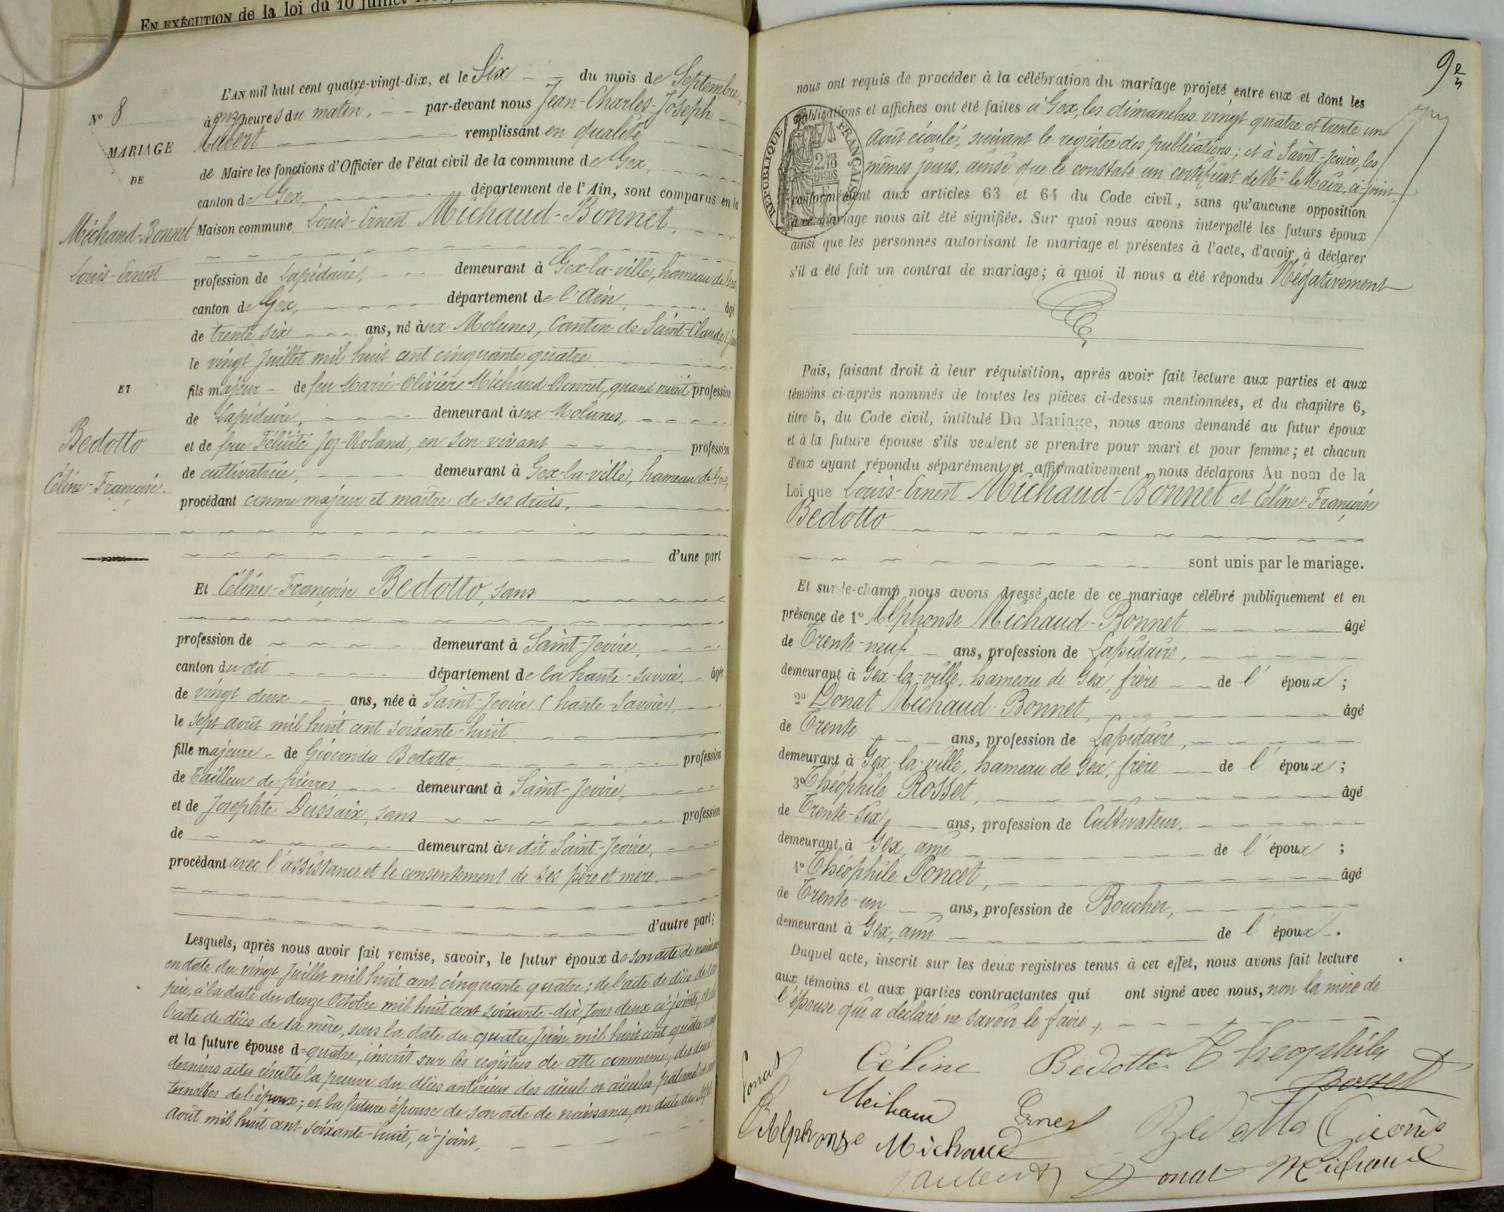 EN EXÉCUTION de la loi du 10 juillet
L'AN mil huit cent quatre-vingt-dix, et le Six du mois de Septembre,
N° 8
à onze heures du matin, par-devant nous Jean-Charles-Joseph
MARIAGE
remplissant en qualité
DE
de Maire les fonctions d'Officier de l'état civil de la commune de Gex,
canton de Gex, département de l'Ain, sont comparus en la
Michaud-Bonnet
Maison commune Louis-Ernest Michaud-Bonnet,
Louis-Ernest
profession de Lapidaire, demeurant à Gex-la-ville, hameau de Gex,
canton de Gex, département de l'Ain, âgé
de trente six ans, né aux Molunes, Canton de Saint-Claude
le vingt Juillet mil huit cent cinquante quatre
ET
fils majeur de feu Marie-Olivier Michaud-Bonnet, quand vivait profession
de Lapidaire, demeurant aux Molunes,
Bedotto
et de feue Félicité Joz-Roland, en son vivant profession
Céline-Françoise.
de cultivatrice, demeurant à Gex-la-ville, hameau de Gex,
procédant comme majeur et maître de ses droits.
d'une part
Et Céline-Françoise Bedotto, sans
profession de demeurant à Saint-Jeoire,
canton du dit département de la haute-savoie âgée
de vingt deux ans, née à Saint-Jeoire (haute Savoie)
le sept août mil huit cent soixante-huit
fille majeure de Giocondo Bedotto profession
de Tailleur de pierres, demeurant à Saint-Jeoire,
et de Josephte Dussaix, sans profession
de demeurant au dit Saint-Jeoire,
procédant avec l'assistance et le consentement de ses père et mère.
d'autre part;
Lesquels, après nous avoir fait remise, savoir, le futur époux de son acte de naissance
en date du vingt Juillet mil huit cent cinquante quatre; de l'acte de décès de son
père, à la date du douze Octobre mil huit cent soixante-dix, tous deux ci-joints, et de
l'acte de décès de sa mère, sous la date du quatre Juin mil huit cent quatre-vingt
et la future épouse d quatre, inscrit sur les registres de cette commune; des deux
derniers actes résulte la preuve du décès antérieur des aïeuls et aïeules paternels et
maternelles de l'époux; et la future épouse de son acte de naissance, en date du sept
août mil huit cent soixante-huit, ci-joint,
9
nous ont requis de procéder à la célébration du mariage projeté entre eux et dont les
publications et affiches ont été faites à Gex, les dimanches vingt quatre et trente un
août écoulé, suivant le registre des publications; et à Saint-Jeoire, les
mêmes jours, ainsi que le constate un certificat de Mr le Maire, ci-joint,
RÉPUBLIQUE FRANÇAISE
conformément aux articles 63 et 64 du Code civil, sans qu'aucune opposition
à ce mariage nous ait été signifiée. Sur quoi nous avons interpellé les futurs époux
ainsi que les personnes autorisant le mariage et présentes à l'acte, d'avoir à déclarer
s'il a été fait un contrat de mariage; à quoi il nous a été répondu Négativement
Puis, faisant droit à leur réquisition, après avoir fait lecture aux parties et aux
témoins ci-après nommés de toutes les pièces ci-dessus mentionnées, et du chapitre 6,
titre 5, du Code civil, intitulé Du Mariage, nous avons demandé au futur époux
et à la future épouse s'ils veulent se prendre pour mari et pour femme; et chacun
d'eux ayant répondu séparément et affirmativement, nous déclarons Au nom de la
Loi que Louis-Ernest Michaud-Bonnet et Céline-Françoise
Bedotto
sont unis par le mariage.
Et sur-le-champ nous avons dressé acte de ce mariage célébré publiquement et en
présence de 1° Alphonse Michaud-Bonnet âgé
de Trente-neuf ans, profession de Lapidaire,
demeurant à Gex-la-ville, hameau de Gex, frère de l'époux;
2° Donat Michaud Bonnet, âgé
de Trente ans, profession de Lapidaire,
demeurant à Gex-la-ville, hameau de Gex, frère de l'époux;
3° Théophile Rosset, âgé
de Trente-six ans, profession de Cultivateur.
demeurant à Gex, ami de l'époux;
4° Théophile Poncet, âgé
de Trente-un ans, profession de Boucher,
demeurant à Gex, ami de l'époux.
Duquel acte, inscrit sur les deux registres tenus à cet effet, nous avons fait lecture
aux témoins et aux parties contractantes qui ont signé avec nous, non la mère de
l'épouse qui a déclaré ne savoir le faire,
Céline Bedotto Théophile
Poncet Rosset
Michaud Ernest Bedotto
Alphonse Michaud
Donat Michaud